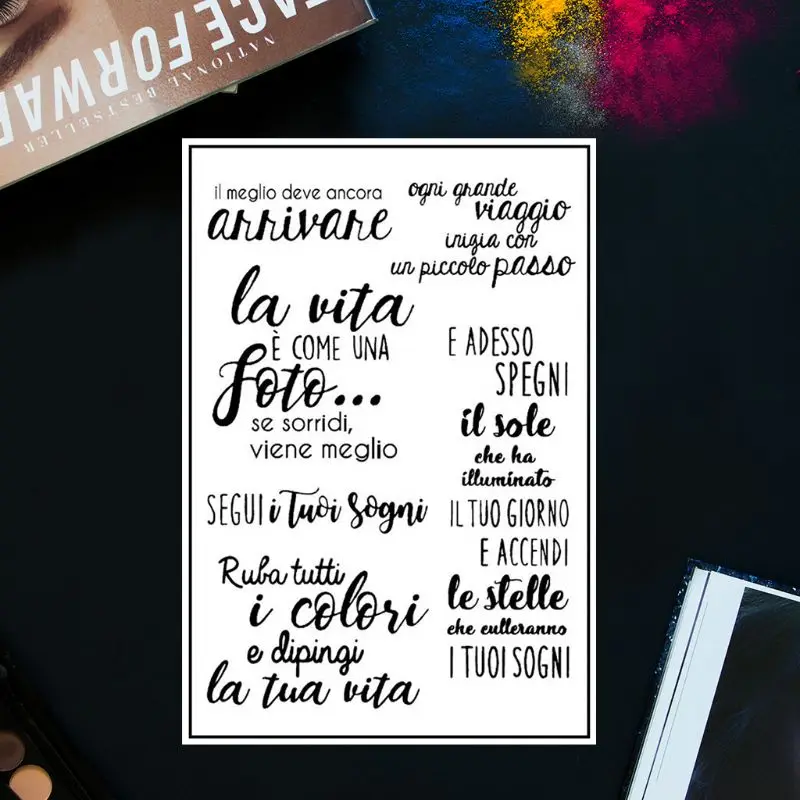 FACE FORWARD
NATIONAL BESTSELLER
il meglio deve ancora
arrivare
ogni grande
viaggio
inizia con
un piccolo passo
la vita
È COME UNA
foto...
se sorridi,
viene meglio
SEGUI i Tuoi Sogni
Ruba tutti
i colori
e dipingi
la tua vita
E ADESSO
SPEGNI
il sole
che ha
illuminato
IL TUO GIORNO
E ACCENDI
le stelle
che culleranno
I TUOI SOGNI